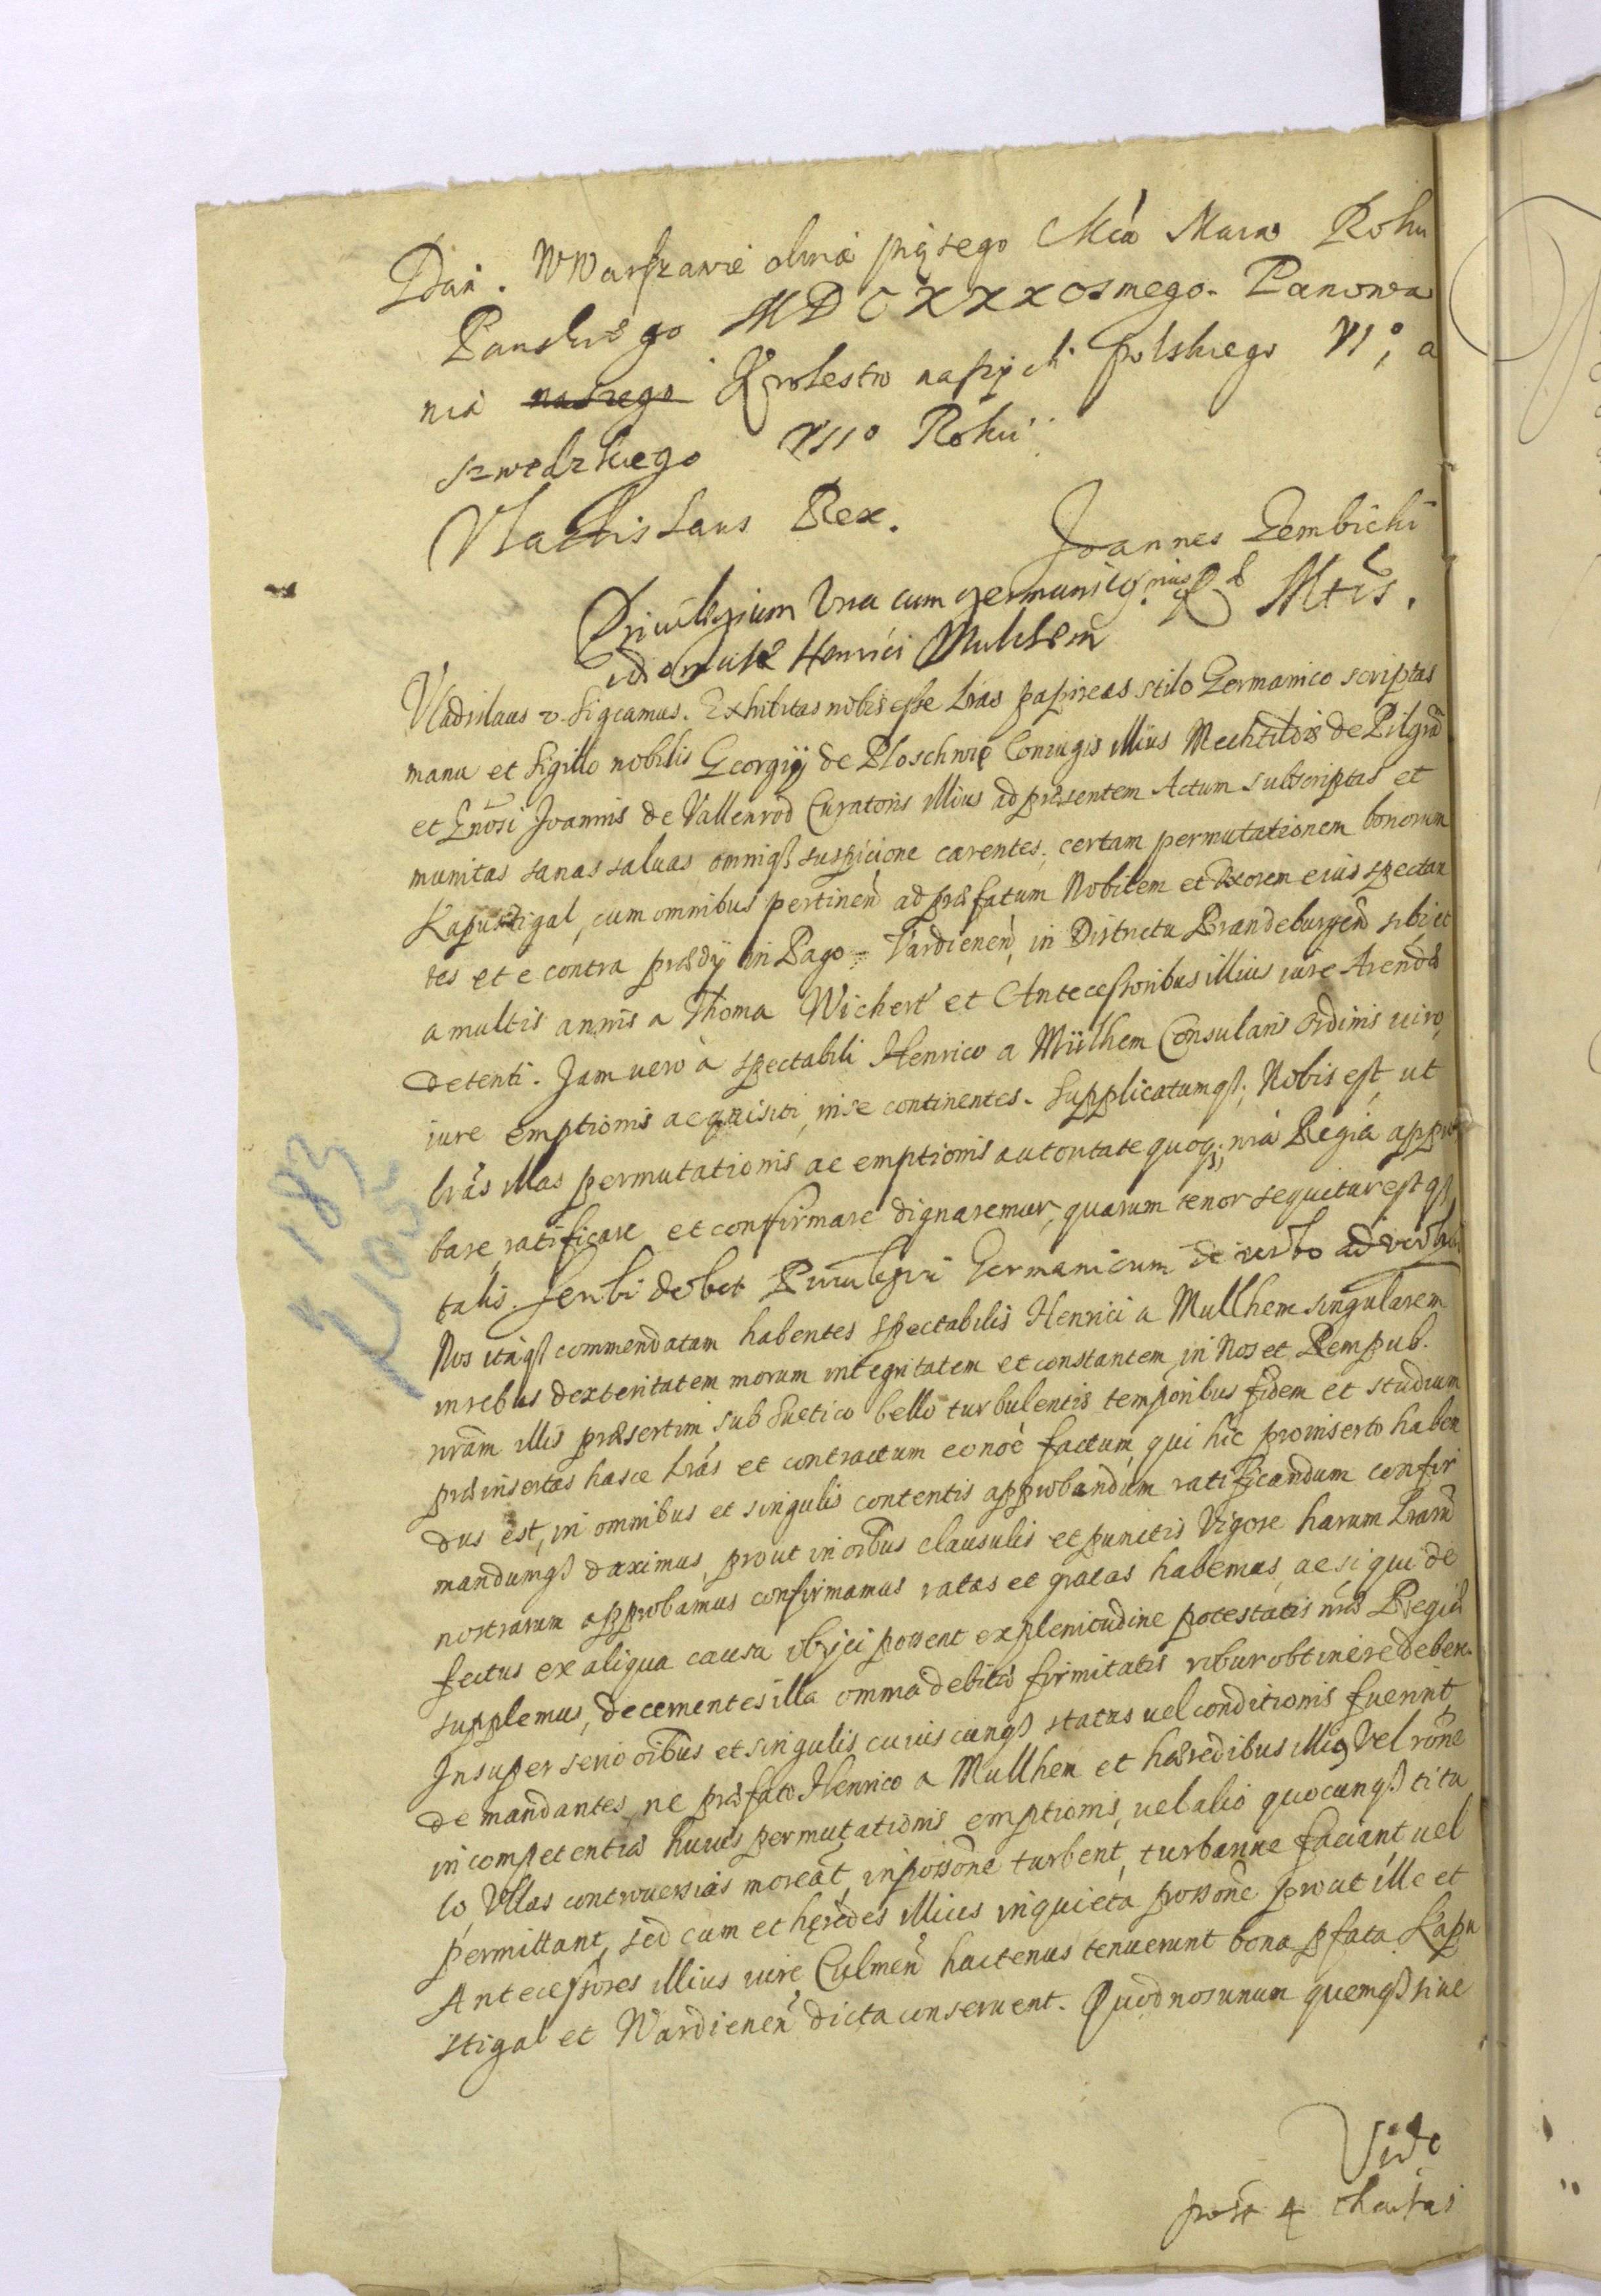 Dan. W Warszawie dnia piątego Mca Marca Roku
Panskiego MDCXXXosmego. Panowa
nia naszego Krolestw naszych polskiego VI°, a
szwedzkiego VII° Roku
Vladislaus Rex.
Joannes Gembicki
Priuilegium Una cum germanico
Henrici Mulhem
Mtis.
Vladislaus 2. Significamus. Exhibitas nobis esse Lras papireas stilo Germanico scriptas
manu et sigillo nobilis Georgij de Ploschwig Coniugis illius Mechtildis de Pilgrā
et Gnosi Joannis de Vallenrod Curatoris illius ad præsentem Actum subscriptas et
munitas sanas saluas omniqz suspicione carentes, certam permutationem bonorum
Kapustigal, cum omnibus pertinen̄ ad præfatum Nobilem et Uxorem eius spectan
tes et e contra prædij in Pago Vardienen̄, in Districtu Brandeburgen̄ siti et
a multis annis a Thoma Wichert et Antecessoribus illius iure Arendæ
detenti. Jam uero à spectabili Henrico a Mülhem Consularis Ordinis uiro,
iure emptionis acquisiti, in se continentes. Supplicatumqz; Nobis est, ut
lrās illas permutationis ac emptionis autoritate quoqz; nrā Regiā appro
bare, ratificare et confirmare dignaremur, quarum tenor sequitur estqz
talis. Scribi debet Priuilegium Germanicum de uerbo ad verbum
Nos itaqz commendatam habentes spectabilis Henrici a Mullhem singularem
in rebus dexteritatem morum integritatem et constantem in Nos et Rempub.
nrām illis præsertim sub Suetico bello turbulentis temporibus fidem et studium
præinsertas hasce Lrās et contractum eo noē factum, qui hic pro inserto haben
dus est, in omnibus et singulis contentis approbandum ratificandum confir
mandumqz duximus, prout in oībus clausulis et punctis Vigore harum Lrarū
nostrarum approbamus confirmamus ratas et gratas habemus, ac si qui de
fectus ex aliqua causa obijci possent ex plenitudine potestatis nrǣ Regiæ
supplemus, decernentes illa omnia debitæ firmitatis robur obtinere debere.
Insuper serio oībus et singulis cuiuscunqz status uel conditionis fuerint
demandantes, ne præfato Henrico a Mullhem et hæredibus illius, Vel rōne
incompetentiæ huius permutationis emptionis, uel alio quocunqz titu
lo, Ullas controuersias moueāt, in possōne turbent, turbarine faciant uel
permittant, sed eum et hęredes illius in quieta possōne prout ille et
Antecessores illius iure Culmen̄ hactenus tenuerunt bona pfata Kapu
stigal et Wardienen̄ dicta conseruent. Quod nos unum quemqz siue
Vide
post 4 chartas
183